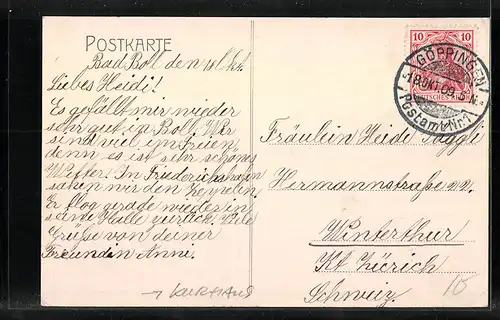 POSTKARTE
Bad Boll den 18. Okt.
Liebes Heidi!
Es gefällt mir wieder
sehr gut in Boll. Wir
sind viel im Freien,
denn es ist sehr schönes
Wetter. In Friedrichshafen
sahen wir den Zeppelin.
Er flog gerade wieder in
seine Halle zurück. Viele
Grüsse von deiner
Freundin Anni.
→ KURHAUS
10 10
DEUTSCHES REICH
GÖPPINGEN
18.OKT.09. 5-N.
Postamt Nr 1
Fräulein Heidi
Hermannstraße
Winterthur
Kt Zürich
Schweiz.
10